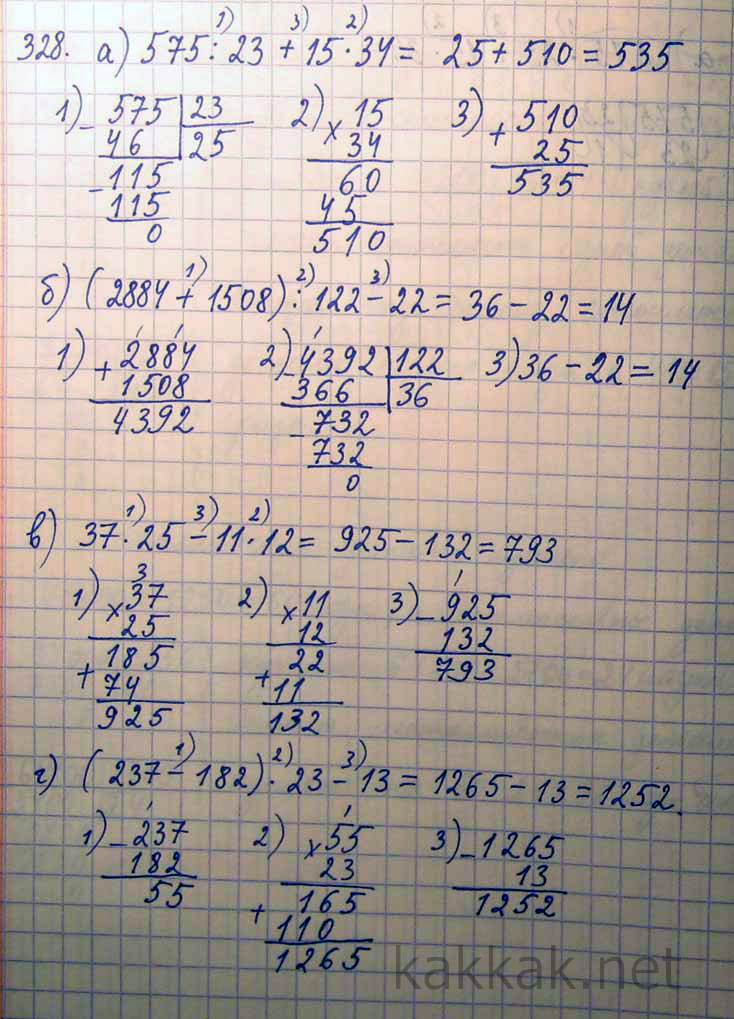 1) 3) 2)
328. а) 575 : 23 + 15 · 34 = 25 + 510 = 535
1) – 575 | 23 2) × 15 3) + 510
46 | 25 34 25
– 115 60 535
115 45
0 510
1) 2) 3)
б) (2884 + 1508) : 122 – 22 = 36 – 22 = 14
1) + 2884 2) – 4392 | 122 3) 36 – 22 = 14
1508 366 | 36
4392 – 732
732
0
1) 3) 2)
в) 37 · 25 – 11 · 12 = 925 – 132 = 793
3
1) × 37 2) × 11 3) – 925
25 12 132
+ 185 22 793
74 + 11
925 132
1) 2) 3)
г) (237 – 182) · 23 – 13 = 1265 – 13 = 1252.
1) – 237 2) × 55 3) – 1265
182 23 13
55 + 165 1252
110
1265
kakkak.net